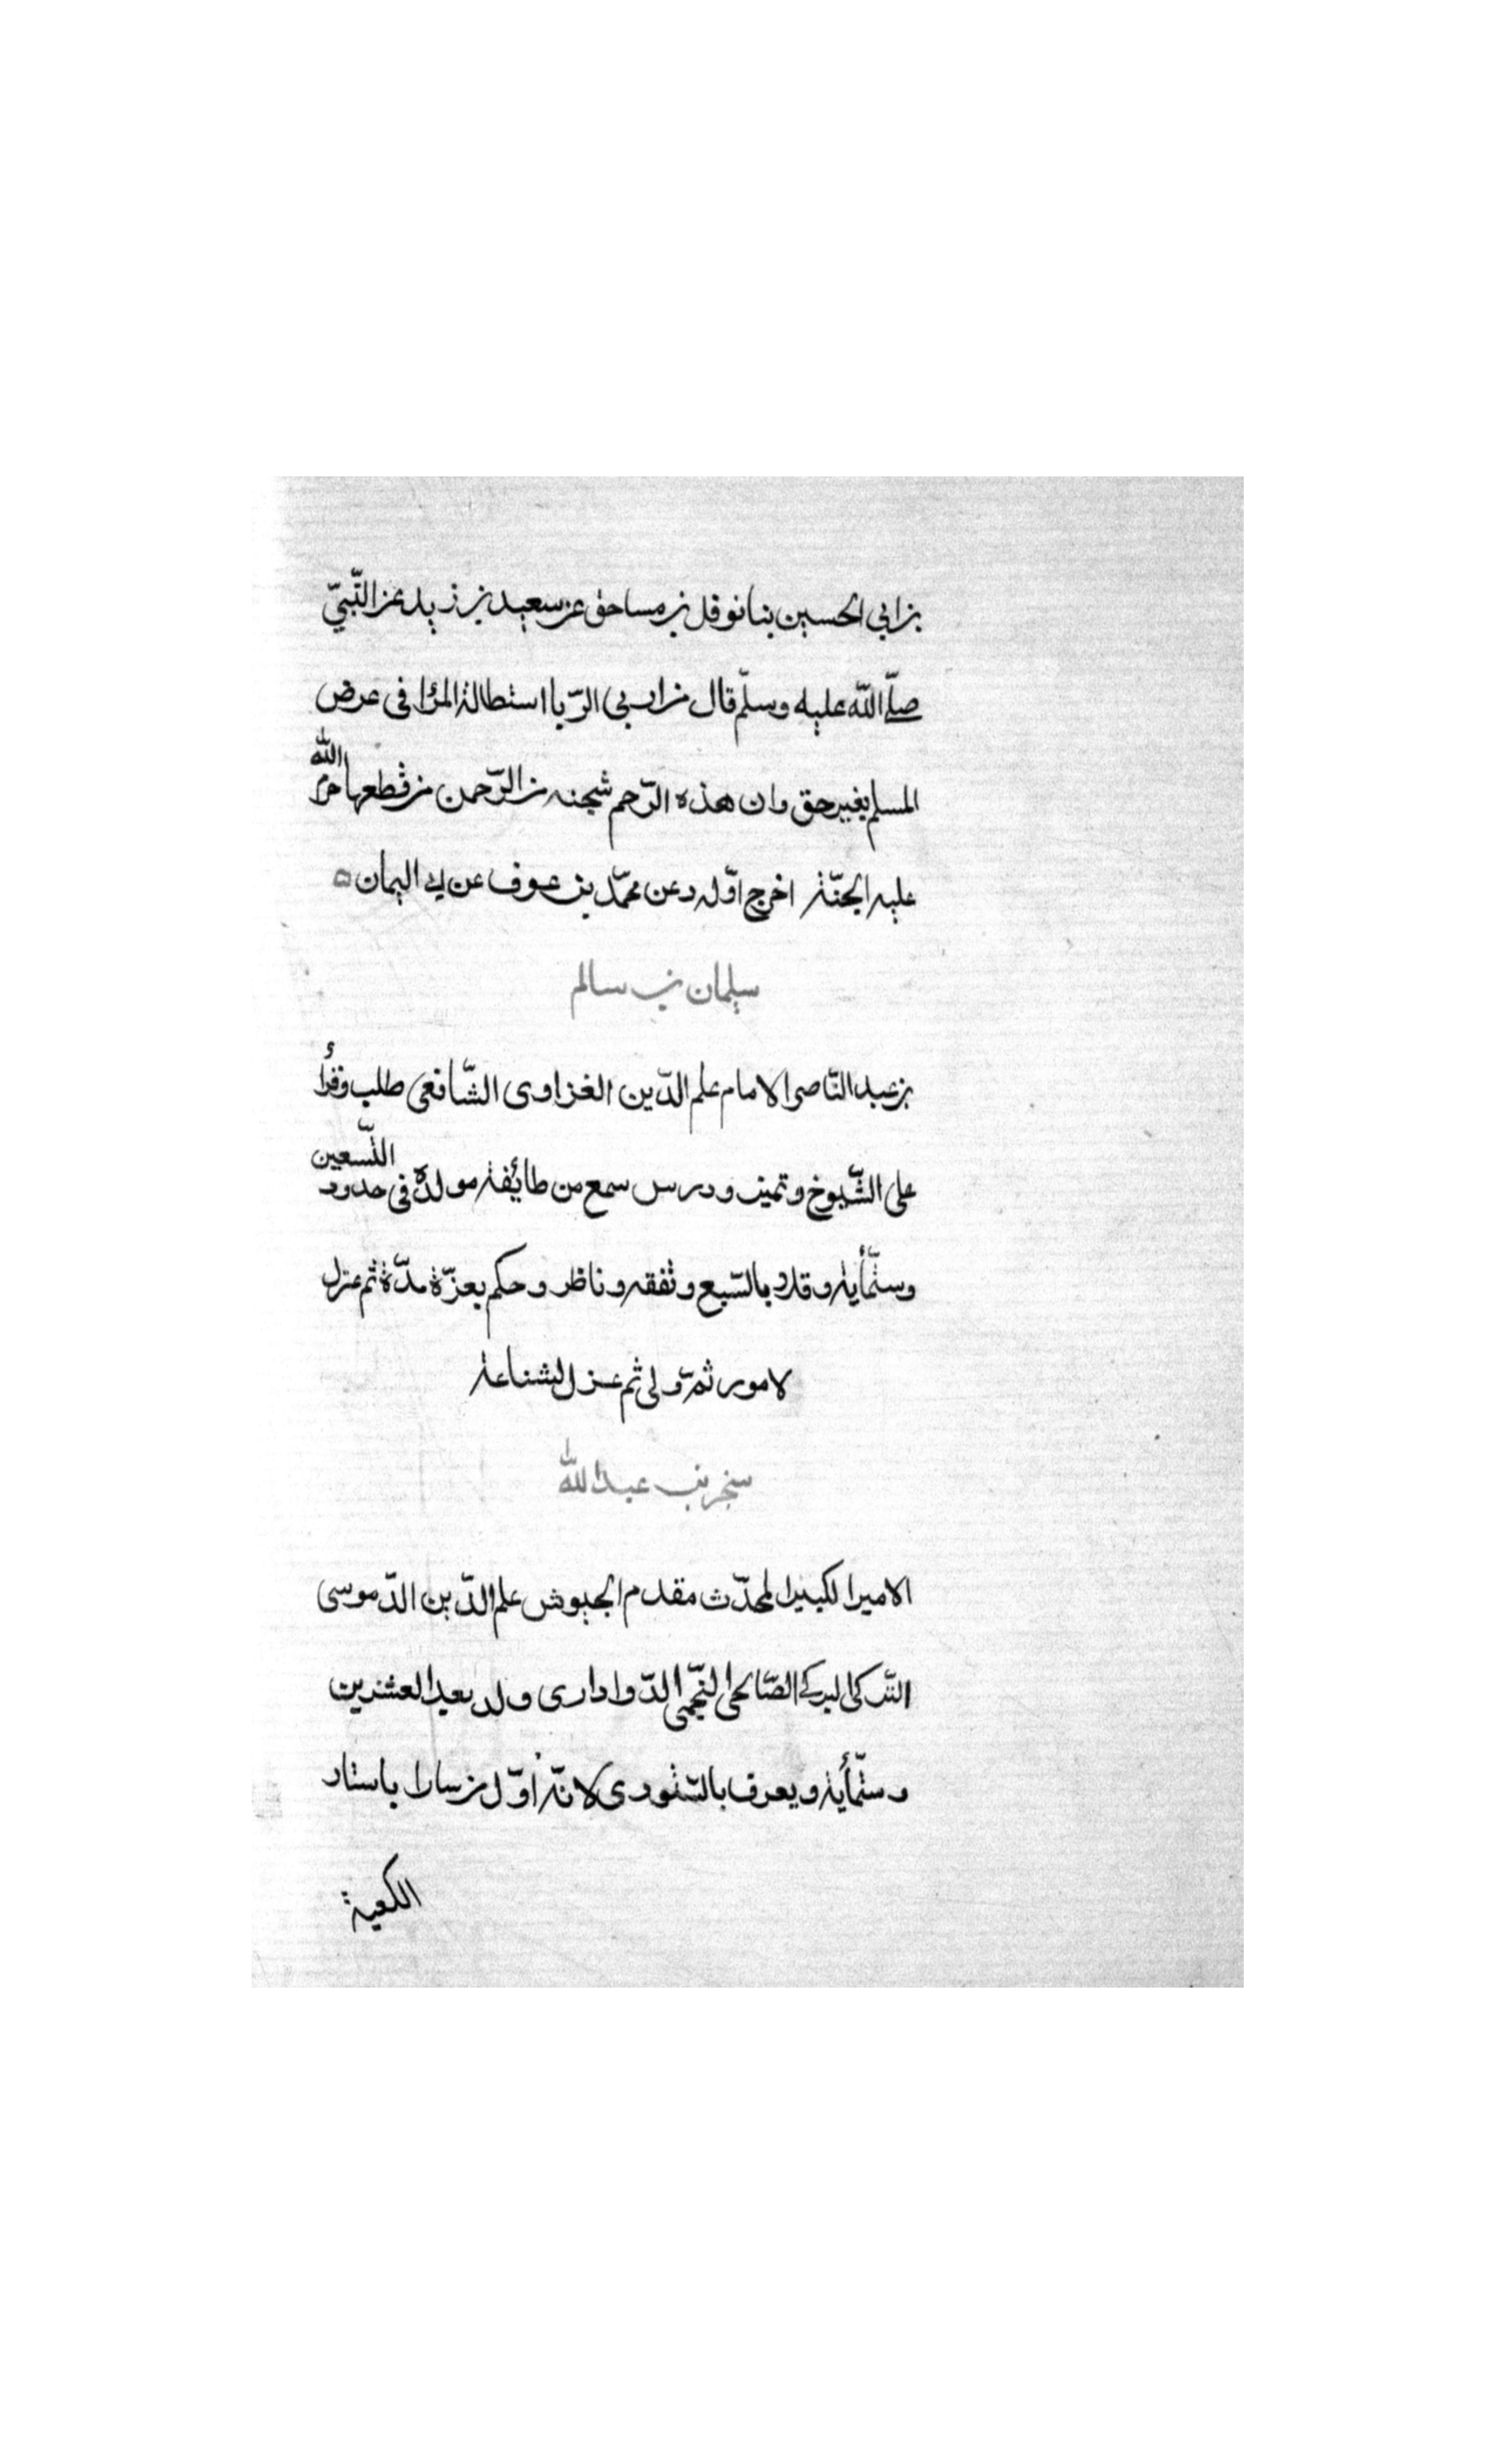 بن ابي الحسين بنا نوفل بن مساحق عن سعيد بن زيد عن النّبيّ
صلّى اللّه عليه وسلّم قال من اربى الرّبا استطالة المرٔا فى عرض
المسلم بغير حق وان هذه الرّحم شجنه من الرّحمن من قطعها حرم اللّه
عليه الجنّة اخرج اوّله د عن محمّد بن عوف عن ابي اليمان ه
سليمان بن سالم
بن عبد النّاصر الامام علم الدّين الغزاوى الشّافعى طلب وقرأ
على الشّيوخ وتميز ودرس سمع من طائفة مولده فى حدود التّسعين
وستّمأية وقلا بالسّبع وتفقه وناظر وحكم بعزّة مدّة ثم عزل
لامور ثمّ ولى ثم عزل لشناعة
سنجر بن عبد اللّه
الامير الكبير المحدّث مقدم الجيوش علم الدّين الدّموسى
التّركى البركى الصّالحى النّجمى الدّوادارى ولد بعيد العشرين
وستّمأية ويعرف بالسّتورى لانّه اوّل من سار باستار
الكعبة